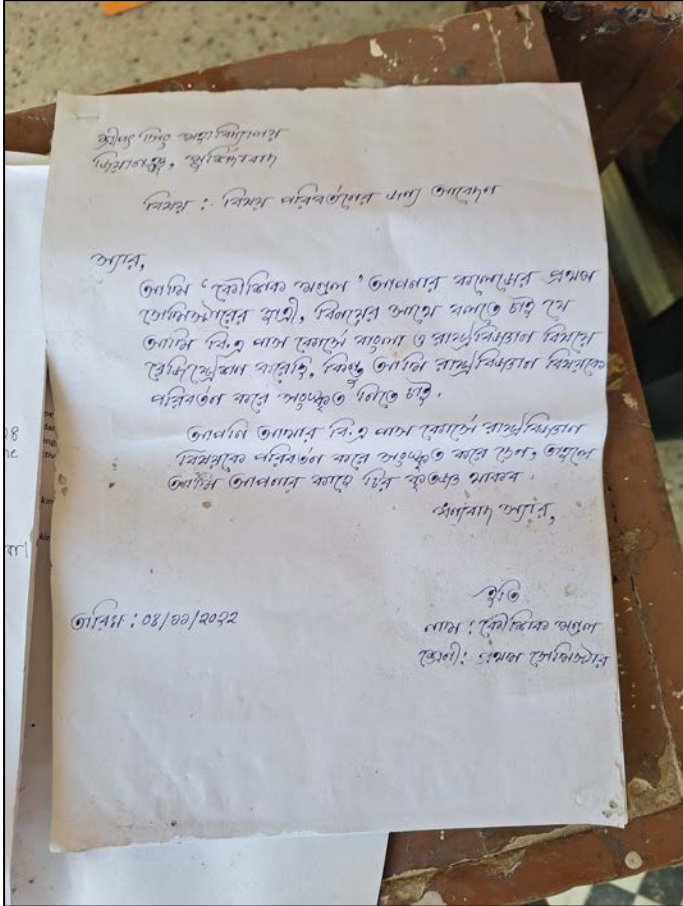 শ্রীপৎ সিং মহাবিদ্যালয়
জিয়াগঞ্জ, মুর্শিদাবাদ
বিষয় : বিষয় পরিবর্তনের জন্য আবেদন
স্যার,
আমি ‘কৌশিক মণ্ডল’ আপনার কলেজের প্রথম
সেমিস্টারের ছাত্রী, বিনয়ের সাথে বলতে চাই যে
আমি বি.এ পাস কোর্সে বাংলা ও রাষ্ট্রবিজ্ঞান বিষয়ে
রেজিস্ট্রেশন করেছি, কিন্তু আমি রাষ্ট্রবিজ্ঞান বিষয়কে
পরিবর্তন করে সংস্কৃত নিতে চাই.
আপনি আমার বি.এ পাস কোর্সে রাষ্ট্রবিজ্ঞান
বিষয়কে পরিবর্তন করে সংস্কৃত করে দেন, তাহলে
আমি আপনার কাছে চির কৃতজ্ঞ থাকব.
ধন্যবাদ স্যার,
ইতি
তারিখ : ০৪/১১/২০২২
নাম : কৌশিক মণ্ডল
শ্রেণী : প্রথম সেমিস্টার
28